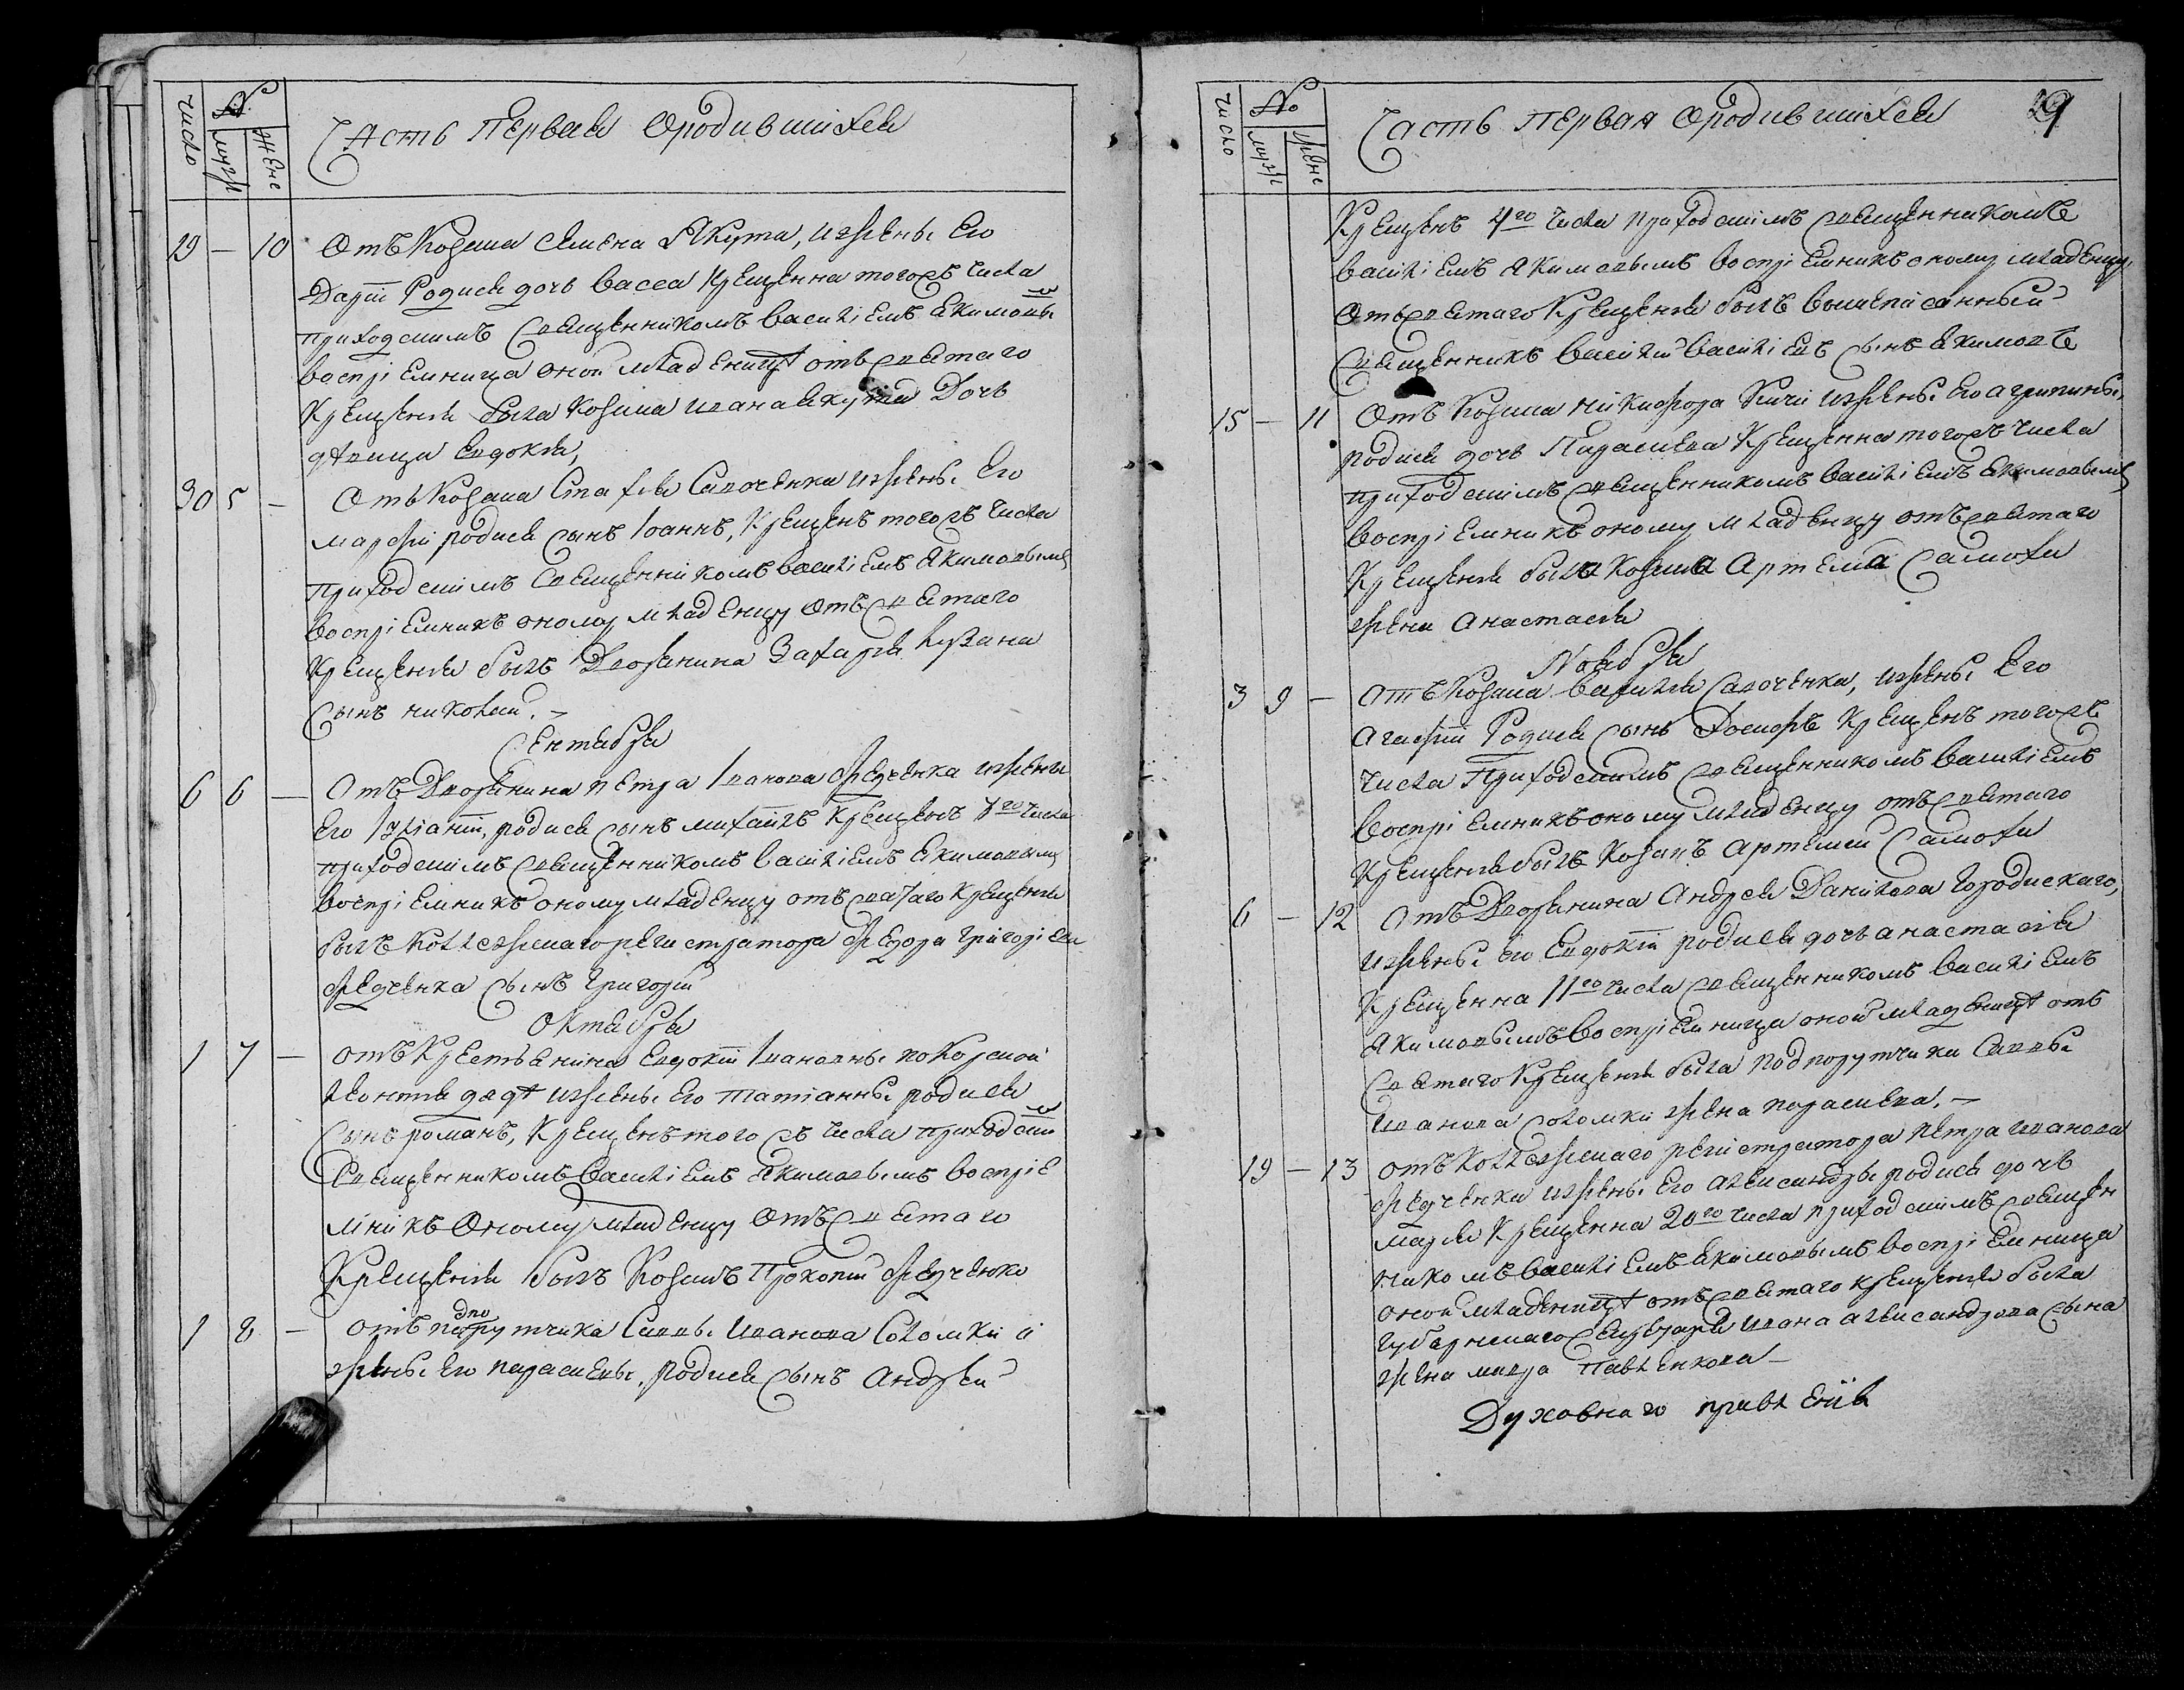 число № муж жене Часть первая Ородившихся
29 — 10 Отъ Козака Семена Якута, ижены Его
Даріи Родися дочь Васса Крещенна тогожъ числа
приходскимъ Священникомъ Василіемъ Якимовы
воспріемница оной младеницѣ отъ святаго
Крещенія была Козака Ивана Якута Дочь
дѣвица Евдокія,
30 5 — Отъ Козака Стахія Савочѣнка ижены Его
Марфи родися сынъ Іоаннъ, Крещенъ тогожъ числа
приходскимъ Священникомъ Василіемъ Якимовымъ
воспріемникъ оному младенцу Отъ святаго
Крещенія былъ Дворянина Захарія
Сынъ николай. —
Сентября
6 6 — Отъ Дворянина петра Іванова Федченка ижены
Его Іуліаніи, родися сынъ михаилъ Крещенъ числа
приходскимъ священникомъ Василіемъ Якимовымъ
воспріемникъ оному младенцу отъ святаго Крещенія
былъ Коллежскаго регистратора Федора Григоріева
Федченка сынъ Григорій
Октября
1 7 — отъ Крестьянина Евдокіи Івановны
Леонтія ижены Его Татіанны родися
Сынъ романъ, Крещенъ тогожъ числа приходски
Священникомъ Василіемъ Якимовымъ воспріе
мникъ Оному младенцу Отъ святаго
Крещенія былъ Козакъ Прокопій Федченко
1 8 — отъ подпорутчика Саввы Иванова Соломки и
жены Его параскевы, родися сынъ Андрей
число № муж жене Часть первая Ородившихся 29
Крещенъ 4го числа приходскимъ священникомъ
Василіемъ Якимовымъ воспріемникъ оному младенцу,
Отъ святаго Крещенія былъ вышеписанный
Священникъ Василій Василіевъ сынъ Якимовъ
15 — 11 Отъ Козака Никифора Кичи ижены Его агрипины,
родися дочь Параскева Крещенна тогожъ числа
приходскимъ священникомъ Василіемъ Якимовымъ
воспріемникъ оному младенцу отъ святаго
Крещенія была Козака Артема Самохи
жена Анастасія
Ноября
3 9 — Отъ Козака Василія Савочѣнка, ижены Его
Агафіи Родися сынъ Іосифъ Крещенъ тогожъ
числа Приходскимъ священникомъ Василіемъ
воспріемникъ оному младенцу отъ святаго
Крещенія былъ Козакъ Артемій Самоха
6 — 12 Отъ Дворянина Андрея Данилова Городискаго,
ижены Его Евдокіи родися дочь анастасія
Крещенна 11го числа священникомъ Василіемъ
Якимовымъ воспріемница оной младеницѣ отъ
Святаго Крещенія была подпорутчика Саввы
Иванова Соломки жена параскева. —
19 — 13 отъ Коллежскаго регистратора петра иванова
Федченка ижены Его Александры родися дочь
марія Крещенна 20го числа приходскимъ священ
никомъ Василіемъ Якимовымъ воспріемница
оной младеницѣ отъ святаго крещенія была
губернскаго Секретаря ивана александрова сына
жена мавра Павленкова —
Духовнаго правленія